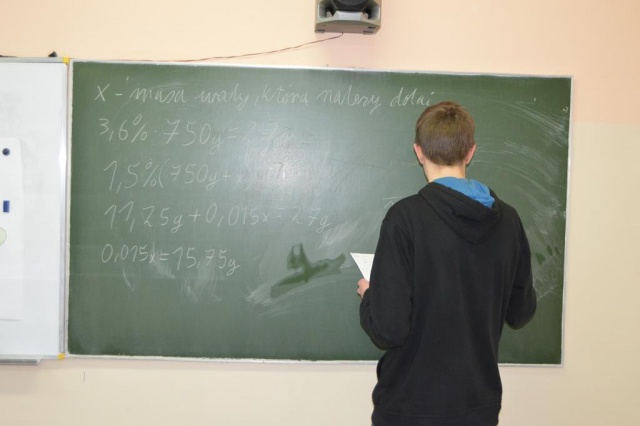 x - masa wody, którą należy dolać
3,6% · 750g =
1,5% (750g +
11,25g + 0,015x = 27g
0,015x = 15,75g